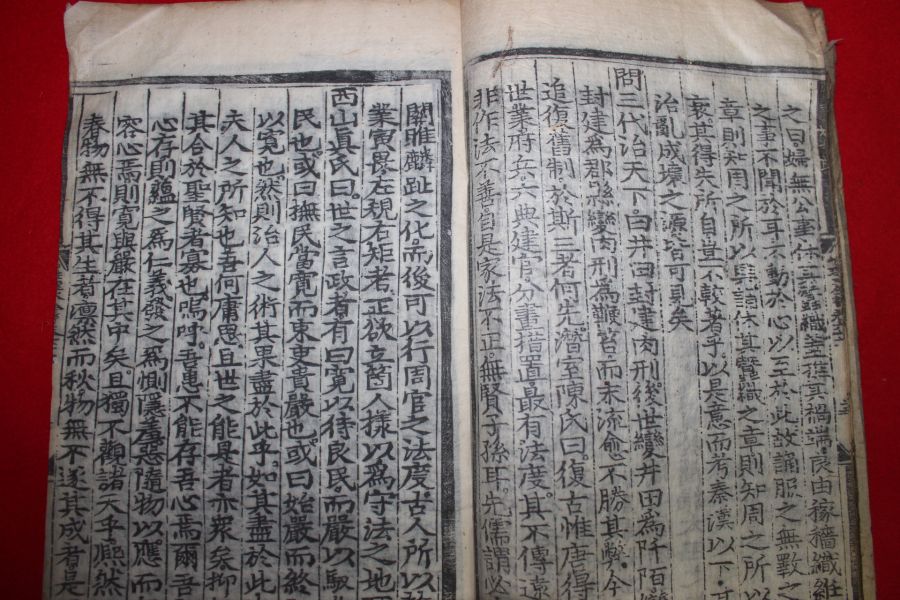 之曰婦無公事休其蠶織蓋推其禍端良由稼穡織紝
之事不聞於耳不動於心以至於此故誦服之無斁之
章則知周之所以興誦休其蠶織之章則知周之所以
衰其得失所自豈不較著乎以是意而考秦漢以下
治亂成壞之源皆可見矣
問三代治天下曰井田封建肉刑後世變井田爲阡陌
封建爲郡縣變肉刑爲鞭笞而末流愈不勝其弊今
追復舊制於斯三者何先潛室陳氏曰復古惟唐得
世業府兵六典建官分畫措置最有法度其不傳遠
非作法不善自是家法不正無賢子孫耳先儒謂必
關雎麟趾之化而後可以行周官之法度古人所以
業寅畏左規右矩者正欲立箇人樣以爲守法之地
西山眞氏曰世之言政者有曰寬以待良民而嚴以馭
民也或曰撫民當寬而束吏貴嚴也或曰始嚴而終
以寬也然則治人之術其果盡於此乎如其盡於此
夫人之所知也吾何庸思且世之能是者亦衆矣抑
其合於聖賢者寡也嗚呼吾患不能存吾心焉爾吾
心存則蘊之爲仁義發之爲惻隱羞惡隨物以應而
容心焉則寬與嚴在其中矣且獨不觀諸天乎熙然
春物無不得其生者凛然而秋物無不遂其成者是